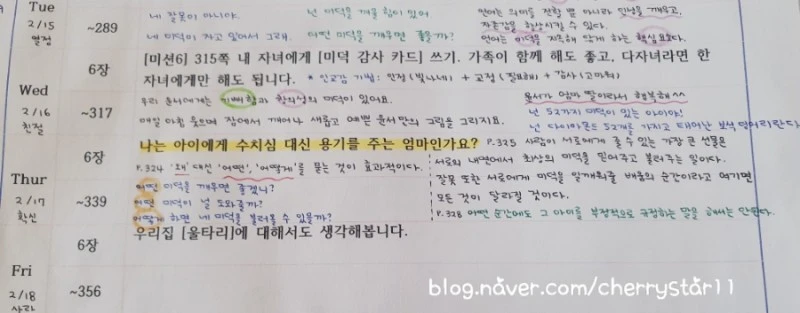 Tue
2/15
열정
~289
6장
네 잘못이 아니야.
넌 미덕을 깨울 힘이 있어
네 미덕이 자고 있어서 그래.
어떤 미덕을 깨우면 좋을까?
언어는 의미를 전할 뿐 아니라 인성을 깨우고,
자존감을 향상시킬 수 있다.
언어는 미덕을 지속해 닦게 하는 핵심요소다.
[미션6] 315쪽 내 자녀에게 [미덕 감사 카드] 쓰기. 가족이 함께 해도 좋고, 다자녀라면 한
자녀에게만 해도 됩니다.
* 인교감 기법: 인정(빛나네) + 교정(필요해) + 감사(고마워)
Wed
2/16
친절
~317
6장
우리 윤서에게는 기뻐함과 창의성의 미덕이 있어요.
매일 아침 웃으며 잠에서 깨어나 새롭고 예쁜 윤서만의 그림을 그리지요.
윤서가 엄마 딸이라서 행복해^^
넌 52가지 미덕이 있는 아이야!
넌 다이아몬드 52개를 가지고 태어난 보석
나는 아이에게 수치심 대신 용기를 주는 엄마인가요?
P.325 사람이 서로에게 줄 수 있는 가장 큰 선물은
서로의 내면에서 최상의 미덕을 믿어주고 불러주는 일이다.
잘못 또한 서로에게 미덕을 일깨워줄 배움의 순간이라고 여기면
모든 것이 달라질 것이다.
P.328 어떤 순간에도 그 아이를 부정적으로 규정하는 말을 해서는 안된다.
Thur
2/17
확신
~339
6장
P.324 '왜' 대신 '어떤', '어떻게'를 묻는 것이 효과적이다.
어떤 미덕을 깨우면 좋겠니?
어떤 미덕이 널 도와줄까?
어떻게 하면 네 미덕을 불러올 수 있을까?
우리집 [울타리]에 대해서도 생각해봅니다.
Fri
2/18
~356
blog.naver.com/cherrystar11